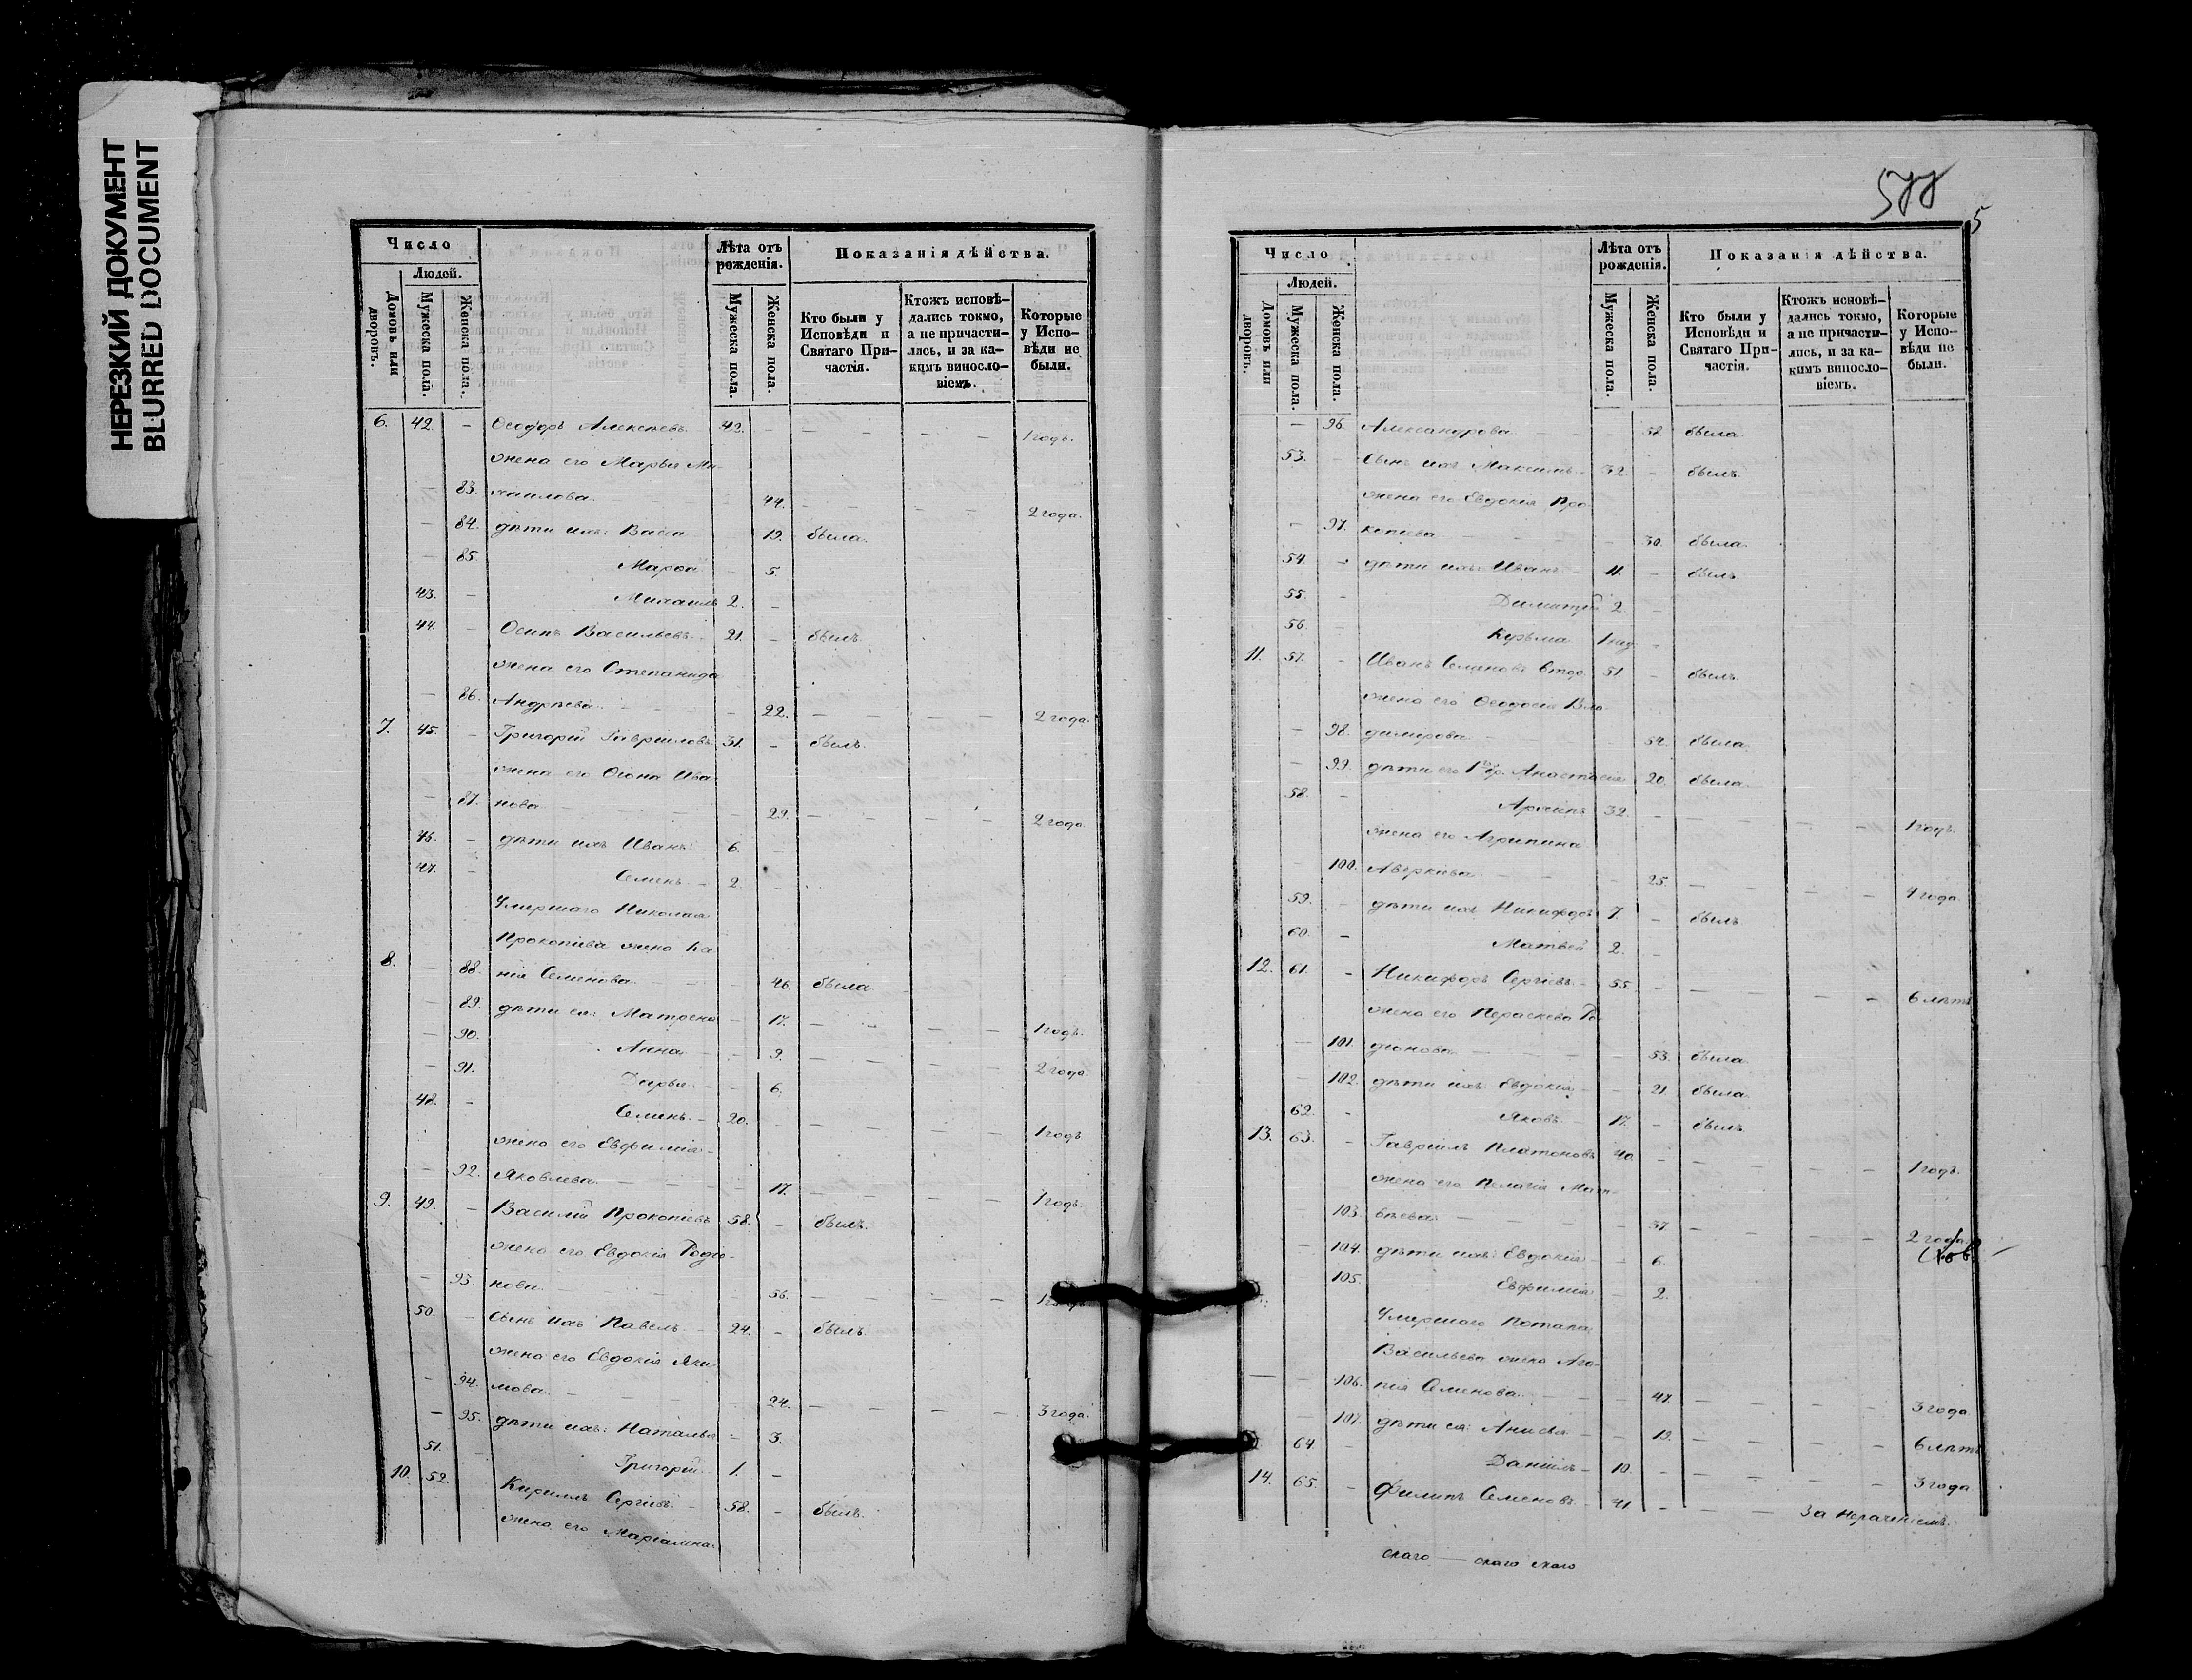 НЕРЕЗКИЙ ДОКУМЕНТ
BLURRED DOCUMENT
Число
Людей.
Домовъ или дворовъ.
Мужеска пола.
Женска пола.
Лѣта отъ рожденія.
Мужеска пола.
Женска пола.
Показанія дѣйства.
Кто были у Исповѣди и Святаго Причастія.
Ктожъ исповѣдались токмо, а не причастились, и за какимъ винословіемъ.
Которые у Исповѣди не были.
6. 42. - Ѳеодоръ Алексѣевъ 42. - - - - - 1 годъ.
жена его Марья Ми-
- 83. хаилова - 44. - - - - 2 года.
- 84. дѣти ихъ: Васса 19. была.
- 85. Марѳа - 5.
43. - Михаилъ 2. -
44. - Осипъ Васильевъ 21. - былъ.
жена его Степанида
- 86. Андрѣева - 22. - - - - 2 года.
7. 45. - Григорій Гавриловъ 31. - былъ.
жена его Ѳіона Ива-
- 87. нова - 29. - - - - 2 года.
46. - дѣти ихъ Иванъ 6. -
47. - Семенъ - 2. -
Умершаго Николая
Прокопіева жена Ка-
8. - 88. нія Семенова - 46. была.
- 89. дѣти ея: Матрена - 17. - - - - 1 годъ.
- 90. Анна - 9. - - - - 2 года.
- 91. Дарья - 6.
48. - Семенъ - 20. - - - - 1 годъ
жена его Евфимія
- 92. Яковлева - 17. - - - - 1 годъ.
9. 49. - Василій Прокопіевъ 58. - былъ.
жена его Евдокія Родіо-
- 93. нова - 56. - - - -
50. - Сынъ ихъ Павелъ - 24. - былъ.
жена его Евдокія Яки-
- 94. мова - 24. - - - - 3 года.
- 95. дѣти ихъ: Наталья - 3.
51. - Григорій 1. -
10. 52. Кириллъ Сергіевъ - 58. - былъ.
жена его Маріамна
577
5
Число
Людей.
Домовъ или дворовъ.
Мужеска пола.
Женска пола.
Лѣта отъ рожденія.
Мужеска пола.
Женска пола.
Показанія дѣйства.
Кто были у Исповѣди и Святаго Причастія.
Ктожъ исповѣдались токмо, а не причастились, и за какимъ винословіемъ.
Которые у Исповѣди не были.
- 96. Александрова - 58. была.
53. - Сынъ ихъ Максимъ 32. - былъ.
жена его Евдокія Про-
- 97. копіева - 30. была.
54. - дѣти ихъ: Иванъ - 11. - былъ.
55. - Димитрій 2. -
56 Кузьма
11. 57. - Иванъ Семеновъ 51 - былъ.
жена его Ѳеодосія Вла-
- 98. димирова - 54. была.
- 99. дѣти его Анастасія 20. была.
58. - Архипъ 32. - - - - 1 годъ.
жена его Агрипина
- 100. Аверкіева - 25. - - - - 4 года.
59. - дѣти ихъ Никифоръ 7. - былъ.
60. - Матвей 2. -
12. 61. - Никифоръ Сергіевъ - 55. - - - - - 6 лѣтъ
жена его Параскева Ро-
- 101. діонова - 53. была.
- 102. дѣти ихъ: Евдокія - 21. была.
62. - Яковъ - 17. - былъ.
13. 63. - Гавріилъ Платоновъ 40. - - - - - 1 годъ.
жена его Пелагія Мат-
- 103. вѣева - 37 - - - - 2 года.
- 104. дѣти ихъ: Евдокія - 6.
105. Евфимія - 2.
Умершаго Потапа
Васильева жена Ага-
- - 106. пія Семенова - 47. - - - - 3 года.
- 107. дѣти ея: Анисія - 19. - - - - 6 лѣтъ
64. - Даніилъ - 10. - - - - 3 года
14. 65. - Филипъ Семеновъ 41 - - - За нерачніемъ.
скаго — скаго скаго